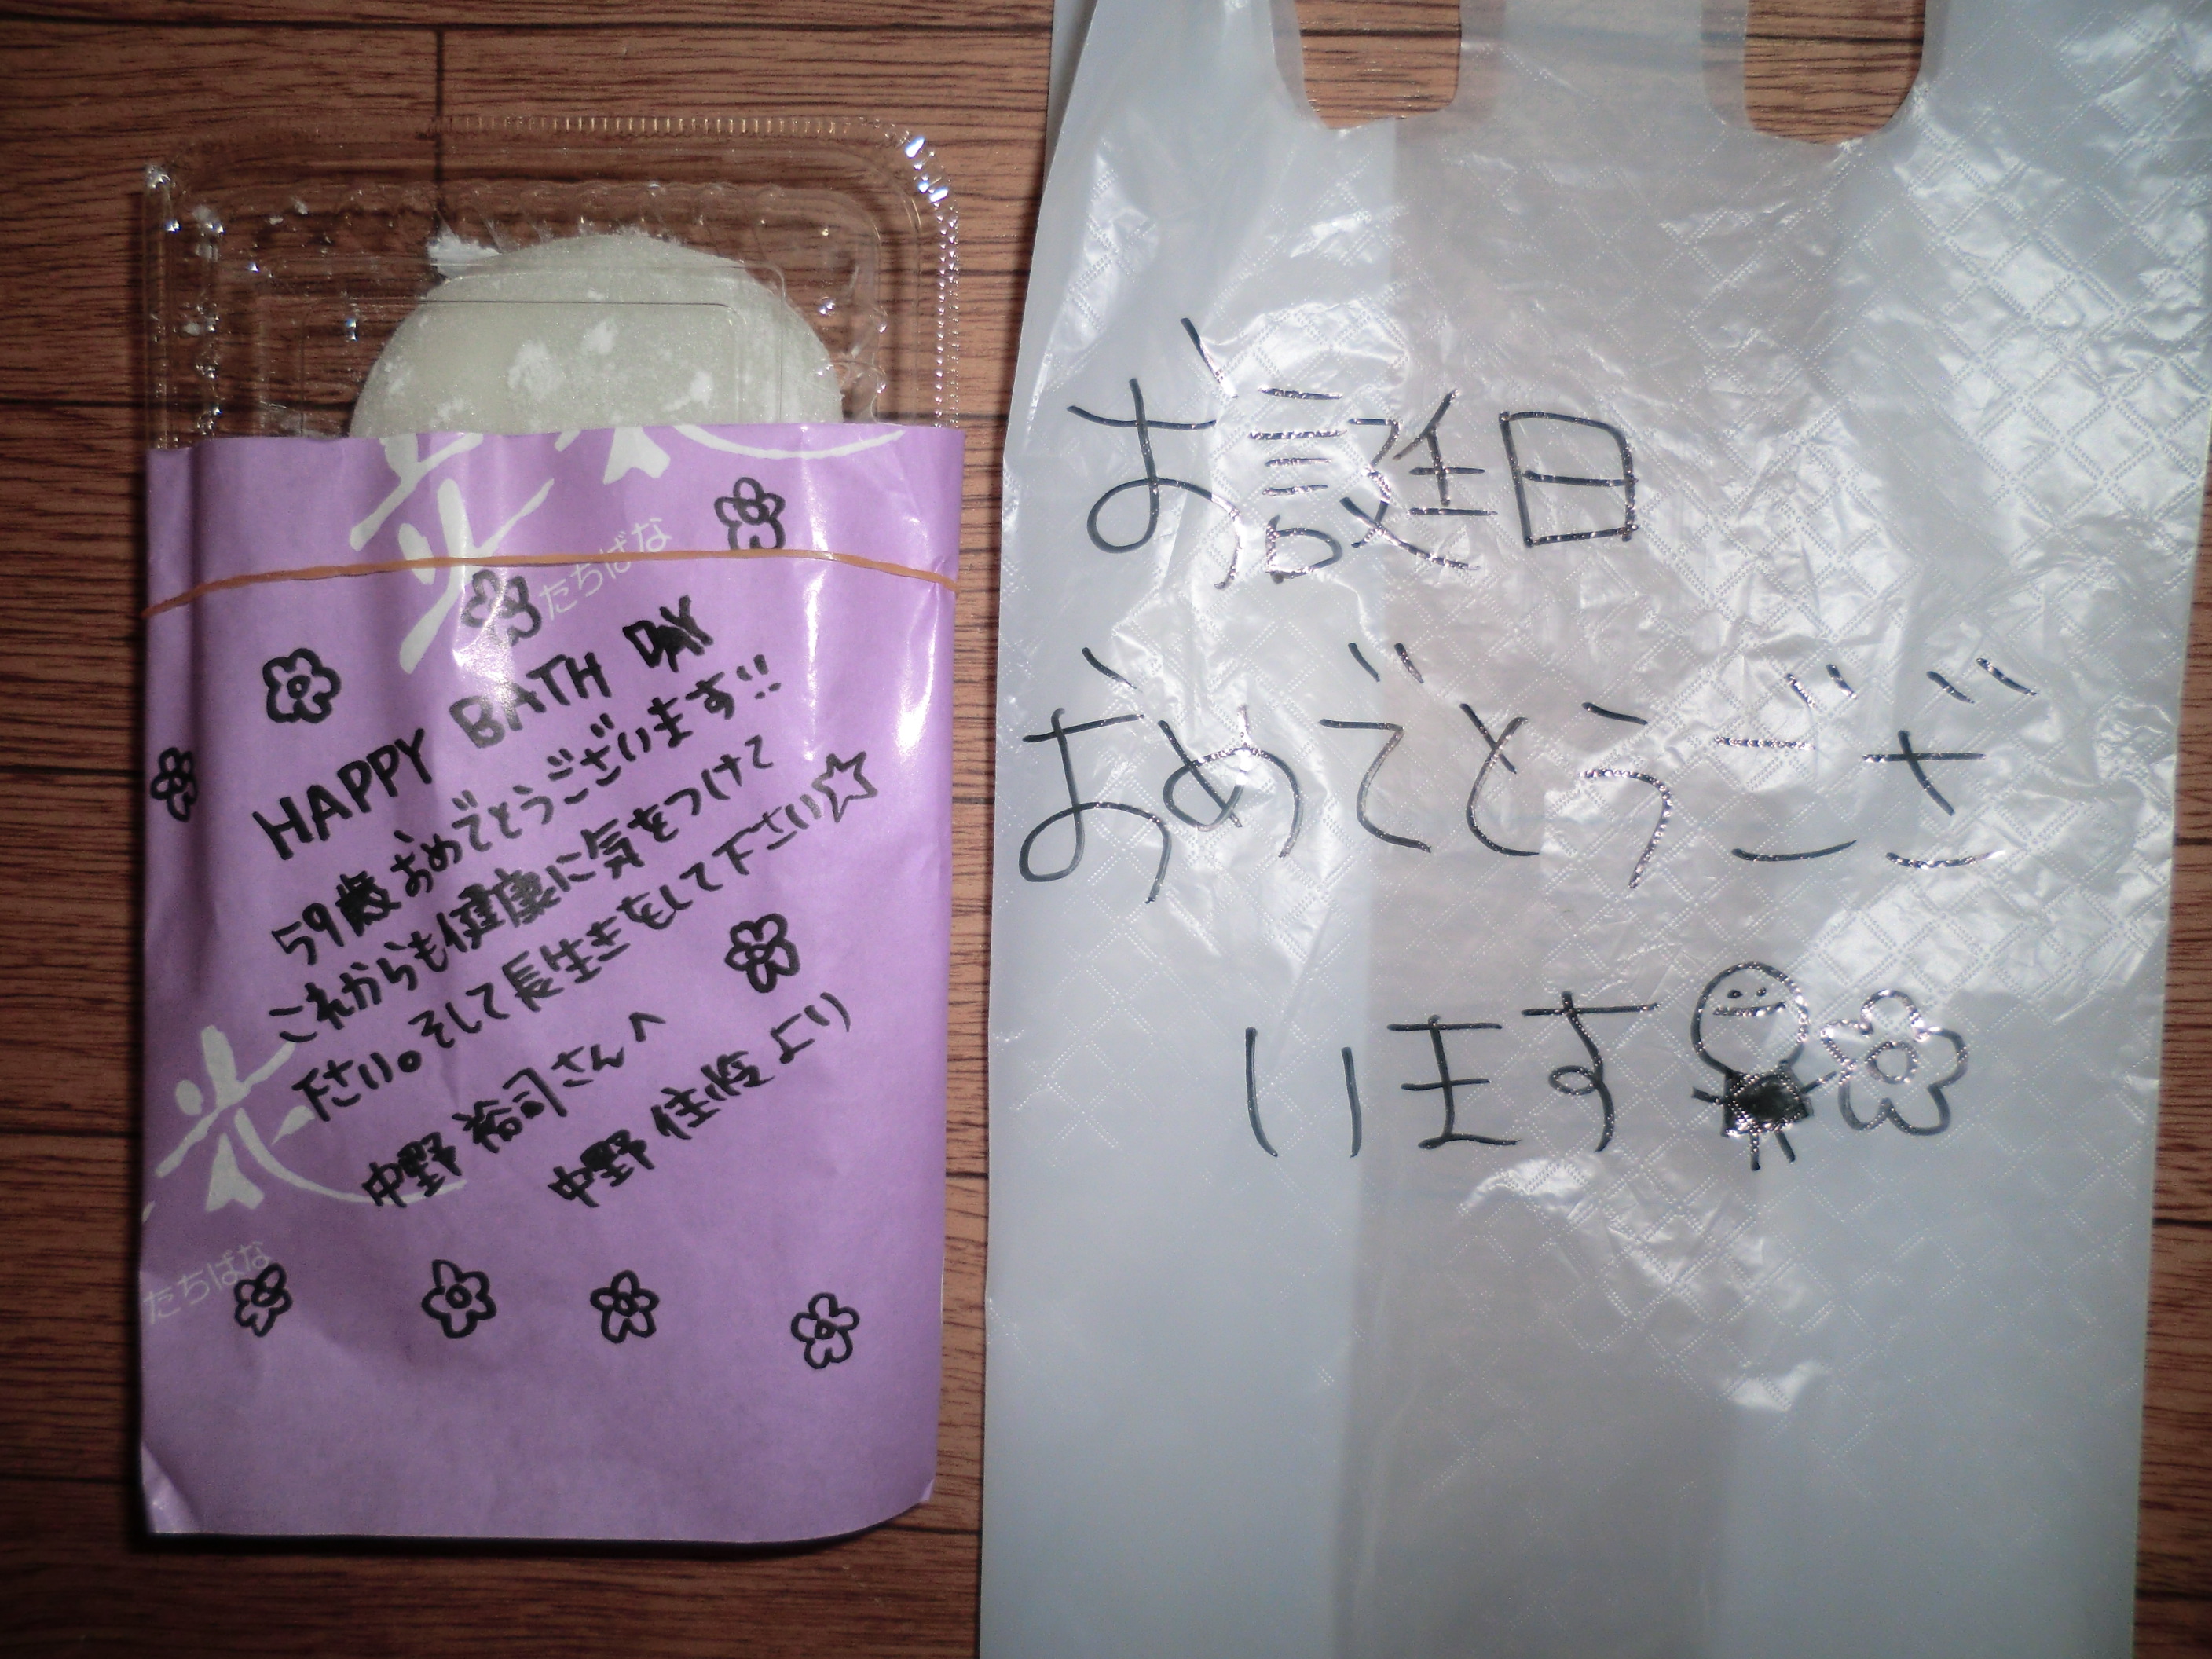 たちばな
HAPPY BATH DAY
59歳おめでとうございます!!
これからも健康に気をつけて
下さい。そして長生きをして下さい☆
中野 裕司さんへ
中野 佳怜 より
たちばな
お誕生日
おめでとうござ
います